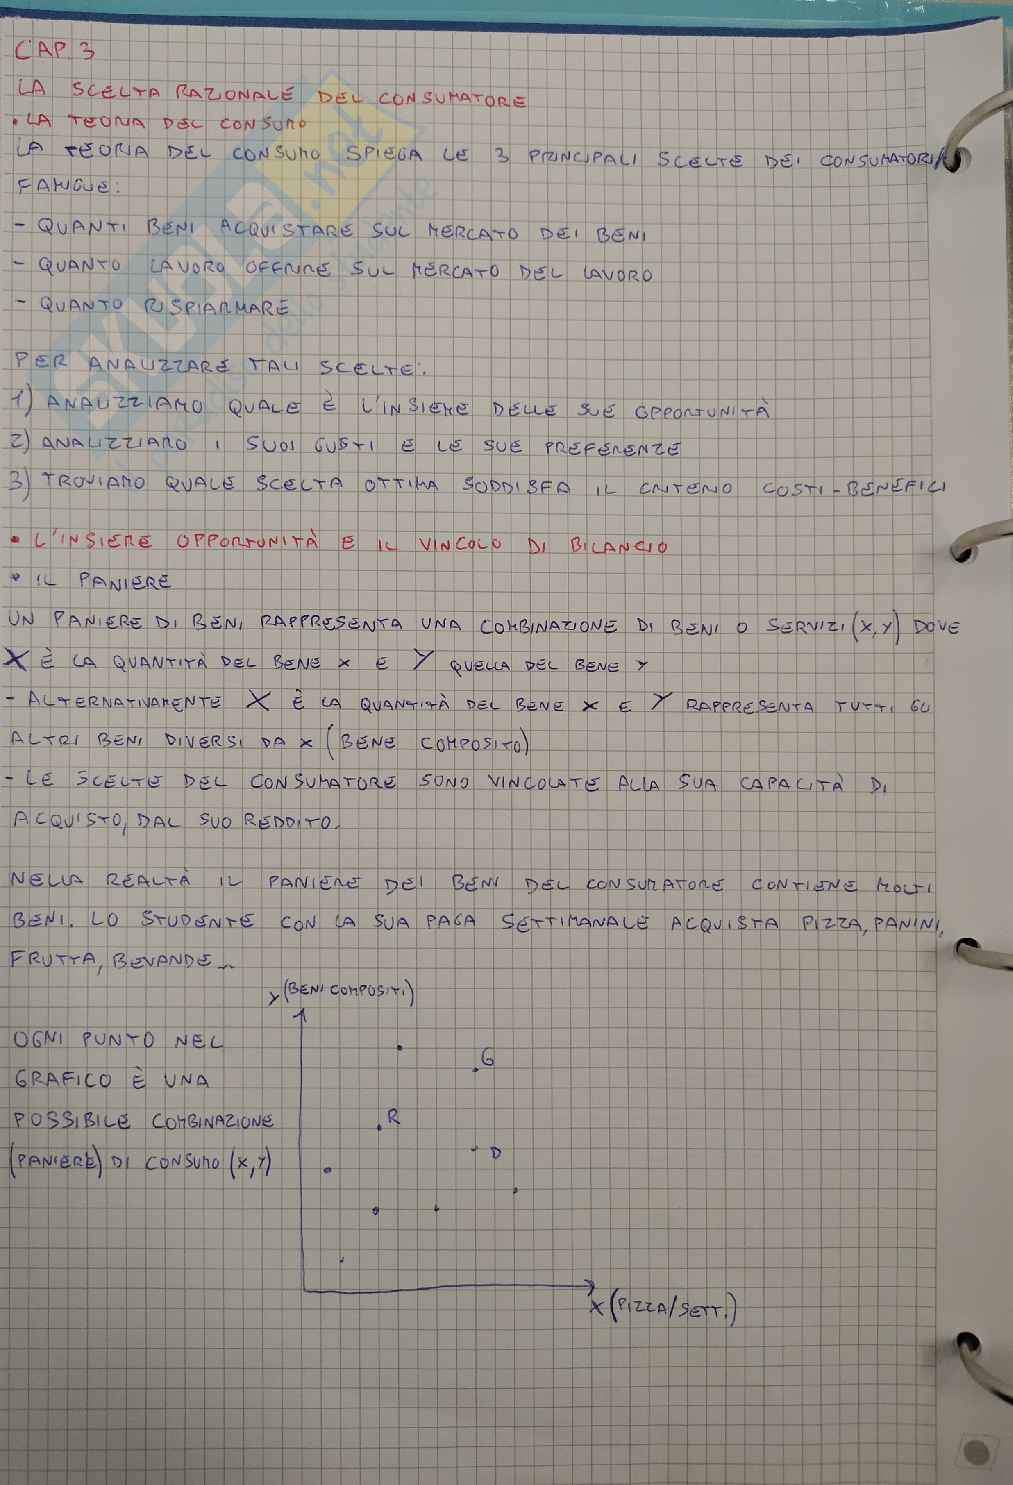 CAP. 3
LA SCELTA RAZIONALE DEL CONSUMATORE
• LA TEORIA DEL CONSUMO
LA TEORIA DEL CONSUMO SPIEGA LE 3 PRINCIPALI SCELTE DEI CONSUMATORI/
FAMIGLIE:
- QUANTI BENI ACQUISTARE SUL MERCATO DEI BENI
- QUANTO LAVORO OFFRIRE SUL MERCATO DEL LAVORO
- QUANTO RISPIARMARE
PER ANALIZZARE TALI SCELTE:
1) ANALIZZIAMO QUALE È L'INSIEME DELLE SUE OPPORTUNITÀ
2) ANALIZZIAMO I SUOI GUSTI E LE SUE PREFERENZE
3) TROVIAMO QUALE SCELTA OTTIMA SODDISFA IL CRITERIO COSTI-BENEFICI
• L'INSIEME OPPORTUNITÀ E IL VINCOLO DI BILANCIO
• IL PANIERE
UN PANIERE DI BENI RAPPRESENTA UNA COMBINAZIONE DI BENI O SERVIZI (X,Y) DOVE
X È LA QUANTITÀ DEL BENE X E Y QUELLA DEL BENE Y
- ALTERNATIVAMENTE X È LA QUANTITÀ DEL BENE X E Y RAPPRESENTA TUTTI GLI
ALTRI BENI DIVERSI DA X (BENE COMPOSITO)
- LE SCELTE DEL CONSUMATORE SONO VINCOLATE ALLA SUA CAPACITÀ DI
ACQUISTO, DAL SUO REDDITO.
NELLA REALTÀ IL PANIERE DEI BENI DEL CONSUMATORE CONTIENE MOLTI
BENI. LO STUDENTE CON LA SUA PAGA SETTIMANALE ACQUISTA PIZZA, PANINI,
FRUTTA, BEVANDE...
Y (BENI COMPOSITI)
OGNI PUNTO NEL
GRAFICO È UNA
POSSIBILE COMBINAZIONE
(PANIERE) DI CONSUMO (X,Y)
G
R
D
X (PIZZA/SETT.)
SKUOLA.net